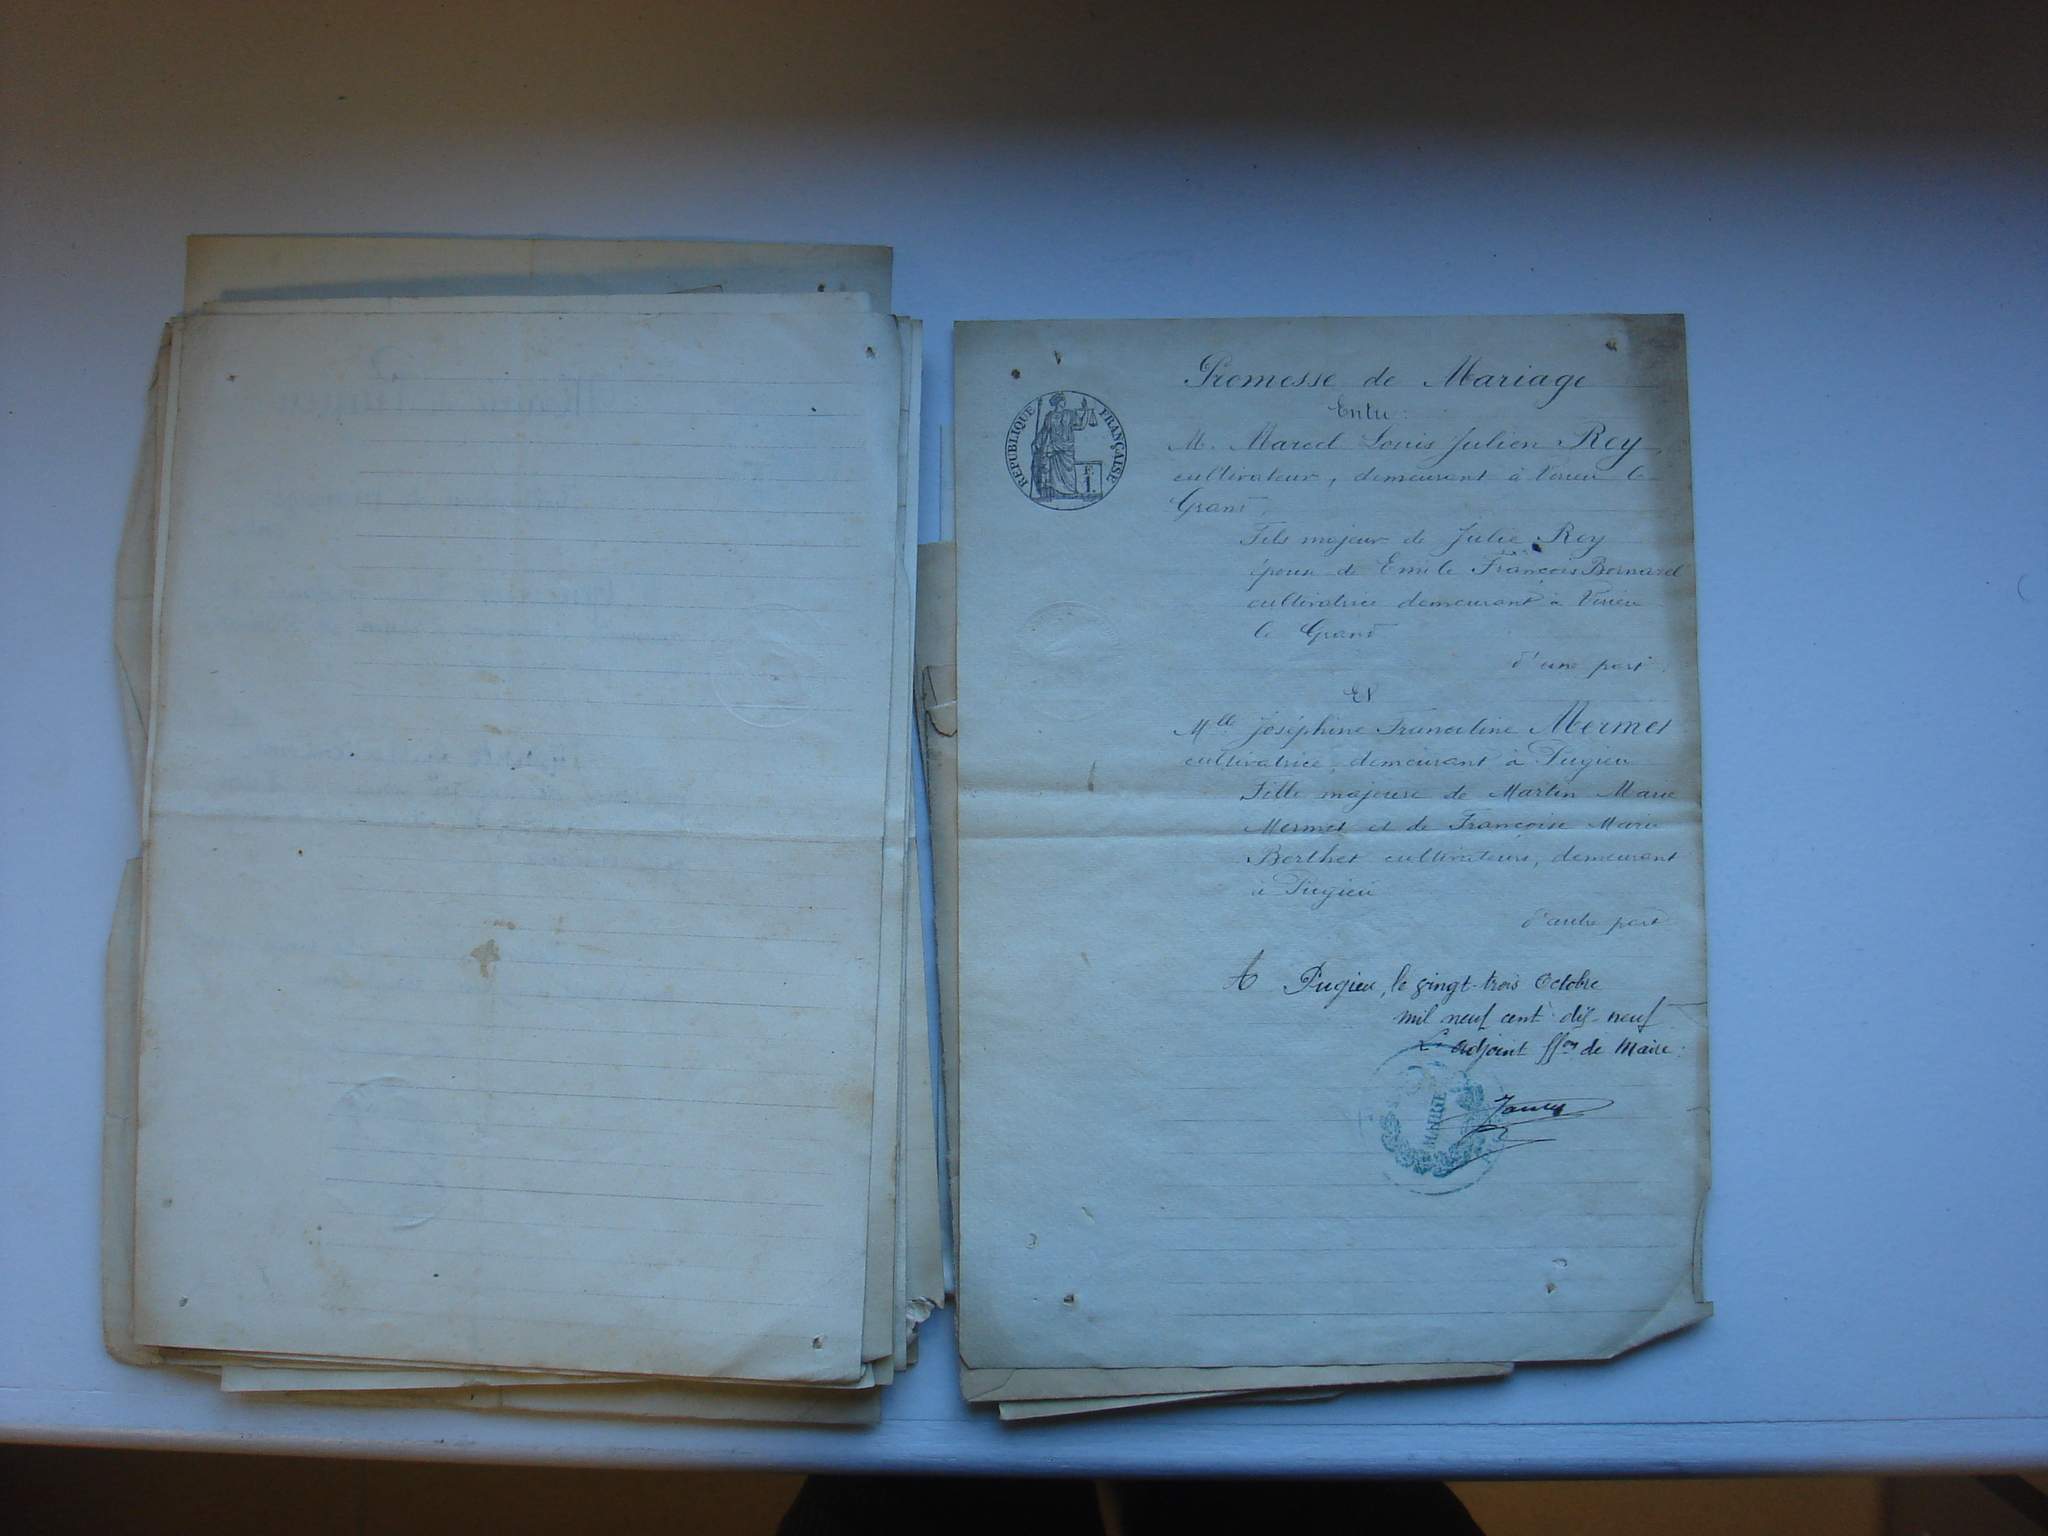 Promesse de Mariage
Entre :
RÉPUBLIQUE FRANÇAISE
F.
1.
M. Marcel Louis Julien Rey,
cultivateur, demeurant à Virieu le
Grand,
Fils majeur de Julie Rey
épouse de Emile François Bernard
cultivatrice demeurant à Virieu
le Grand
d'une part.
Et
Mlle Joséphine Franceline Mermet
cultivatrice, demeurant à Pugieu
Fille majeure de Martin Marie
Mermet et de Françoise Marie
Berthet cultivateurs, demeurant
à Pugieu
d'autre part
A Pugieu, le vingt-trois Octobre
mil neuf cent dix-neuf
L'adjoint ffon de Maire :
MAIRIE